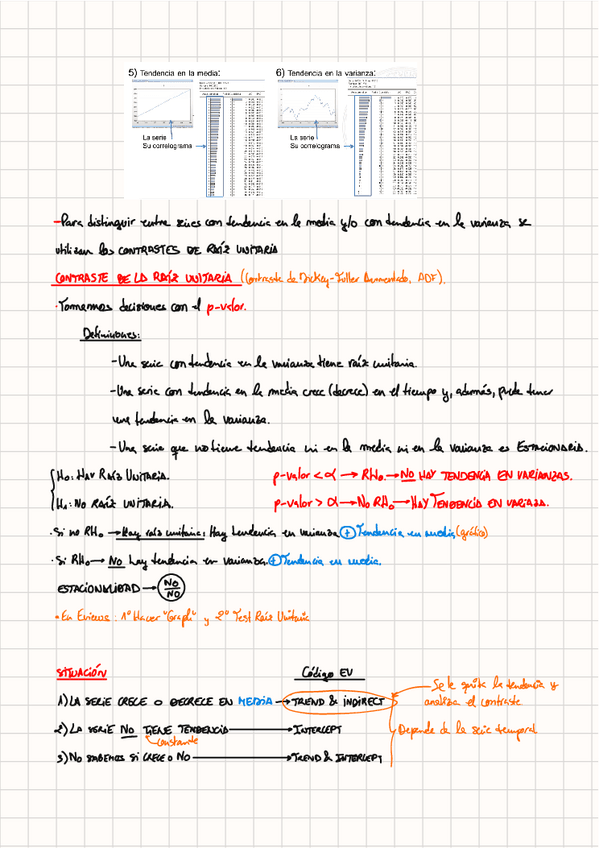 5) Tendencia en la media:
6) Tendencia en la varianza:
La serie
Su correlograma
La serie
Su correlograma
-Para distinguir entre series con tendencia en la media y/o con tendencia en la varianza se
utilizan los CONTRASTES DE RAÍZ UNITARIA
CONTRASTE DE LA RAÍZ UNITARIA (Contraste de Dickey-Fuller Aumentado, ADF).
· Tomamos decisiones con el p-valor.
Definiciones:
-Una serie con tendencia en la varianza tiene raíz unitaria.
-Una serie con tendencia en la media crece (decrece) en el tiempo y, además, puede tener
una tendencia en la varianza.
-Una serie que no tiene tendencia ni en la media ni en la varianza es ESTACIONARIA.
H0: HAY RAÍZ UNITARIA. p-valor < α → RH0 → NO HAY TENDENCIA EN VARIANZAS.
H1: NO RAÍZ UNITARIA. p-valor > α → No RH0 → HAY TENDENCIA EN VARIAZA.
· Si no RH0 → Hay raíz unitaria: Hay tendencia en varianza + Tendencia en media (gráfico)
· Si RH0 → NO hay tendencia en varianza. + Tendencia en media.
ESTACIONALIDAD → NO/NO
· En Eviews: 1º Hacer "Graph" y 2º Test Raíz Unitaria
SITUACIÓN Código EV
1) LA SERIE CRECE O DECRECE EN MEDIA → TREND & INDIRECT
Se le quita la tendencia y
analiza el contraste
2) LA SERIE NO TIENE TENDENCIA → INTERCEPT
constante
Depende de la serie temporal
3) NO SABEMOS SI CRECE O NO → TREND & INTERCEPT